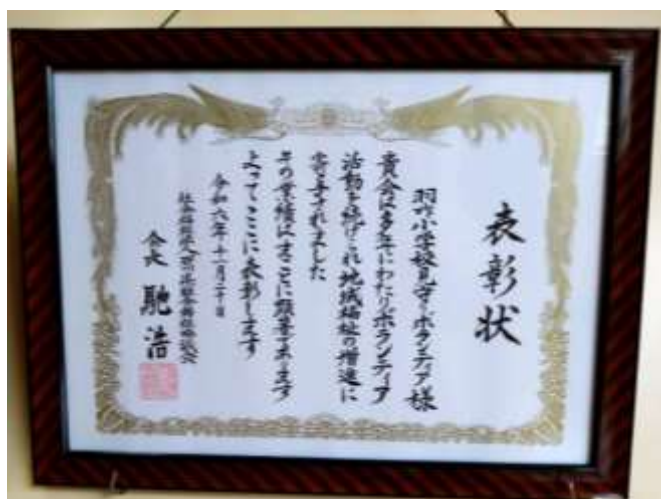 表彰状
羽咋小学校見守りボランティア様
貴会は多年にわたりボランティア
活動を続けられ地域福祉の増進に
寄与されました
その業績はまことに顕著であります
よってここに表彰します
令和六年十一月二十日
社会福祉法人石川県社会福祉協議会
会長 馳浩